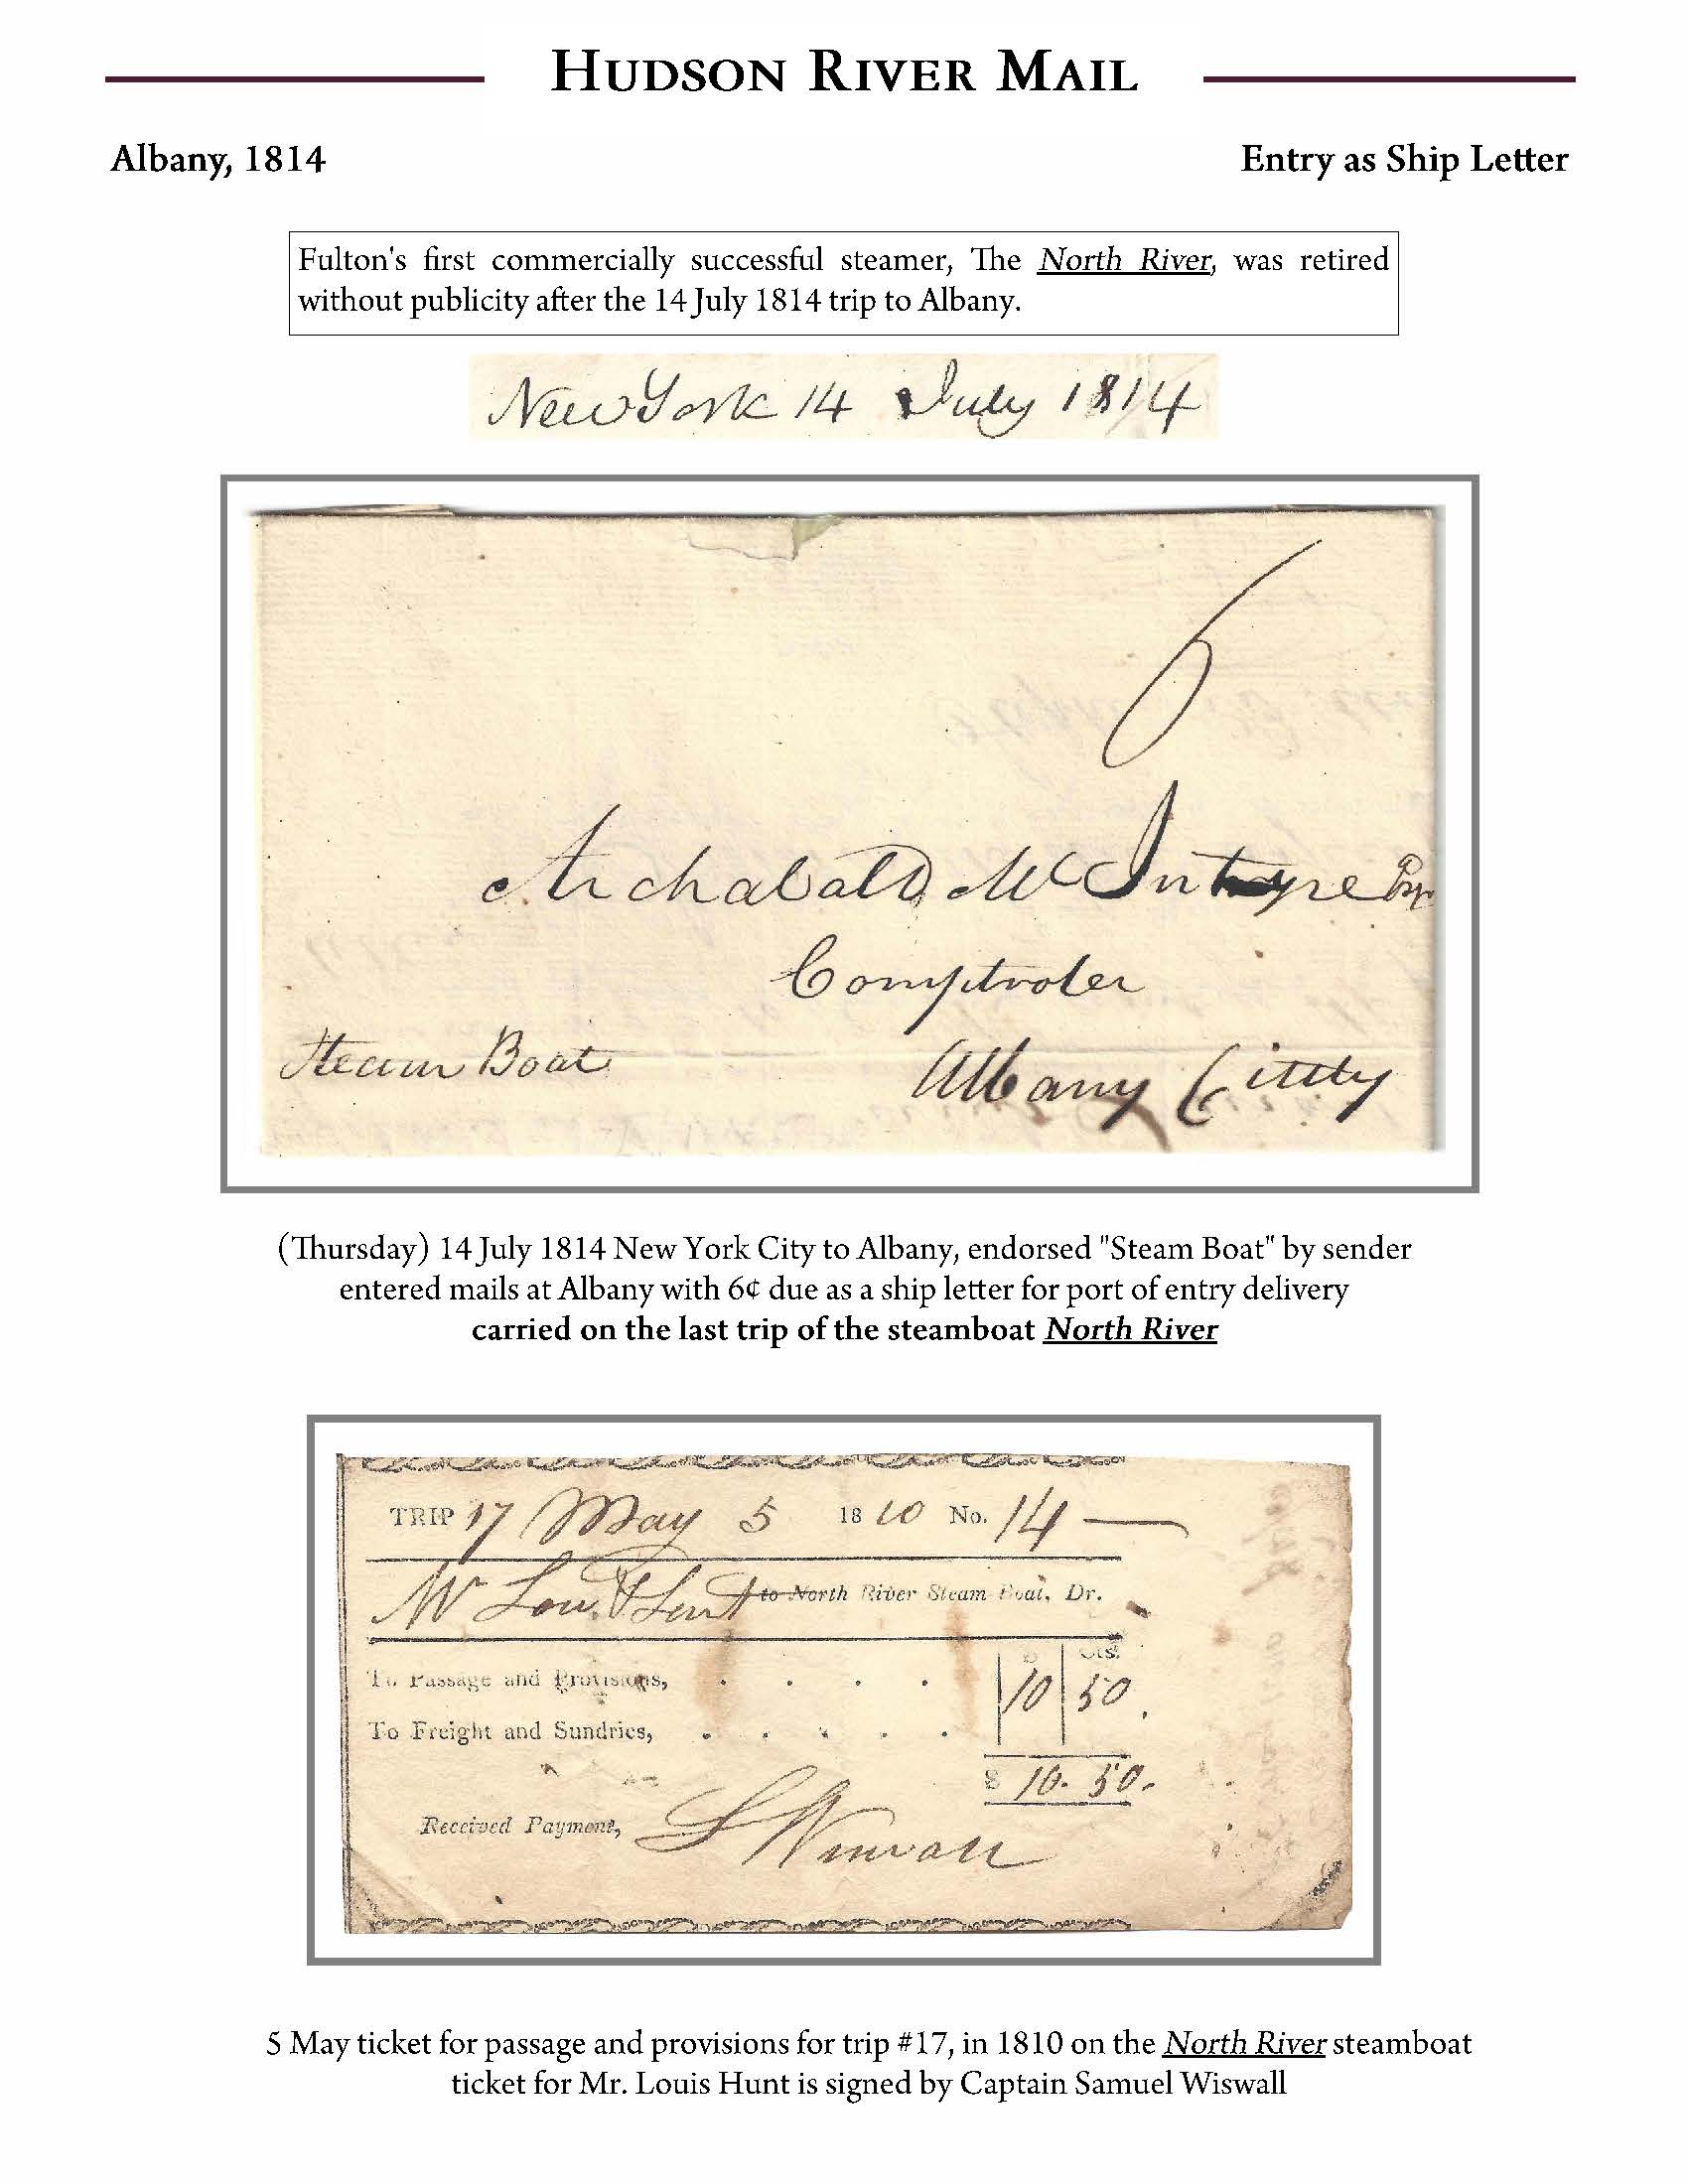 HUDSON RIVER MAIL
Albany, 1814
Entry as Ship Letter
Fulton's first commercially successful steamer, The North River, was retired
without publicity after the 14 July 1814 trip to Albany.
New York 14 July 1814
6
Archabald McIntyre Esqr
Comptroler
Steam Boat
Albany Cittty
(Thursday) 14 July 1814 New York City to Albany, endorsed "Steam Boat" by sender
entered mails at Albany with 6¢ due as a ship letter for port of entry delivery
carried on the last trip of the steamboat North River
TRIP 17 May 5 1810 No. 14
Mr Lou. Hunt to North River Steam Boat, Dr.
$ Cts.
To Passage and Provisions, . . . . 10 50.
To Freight and Sundries, . . . . .
$ 10. 50.
Received Payment, S Wiswall
5 May ticket for passage and provisions for trip #17, in 1810 on the North River steamboat
ticket for Mr. Louis Hunt is signed by Captain Samuel Wiswall